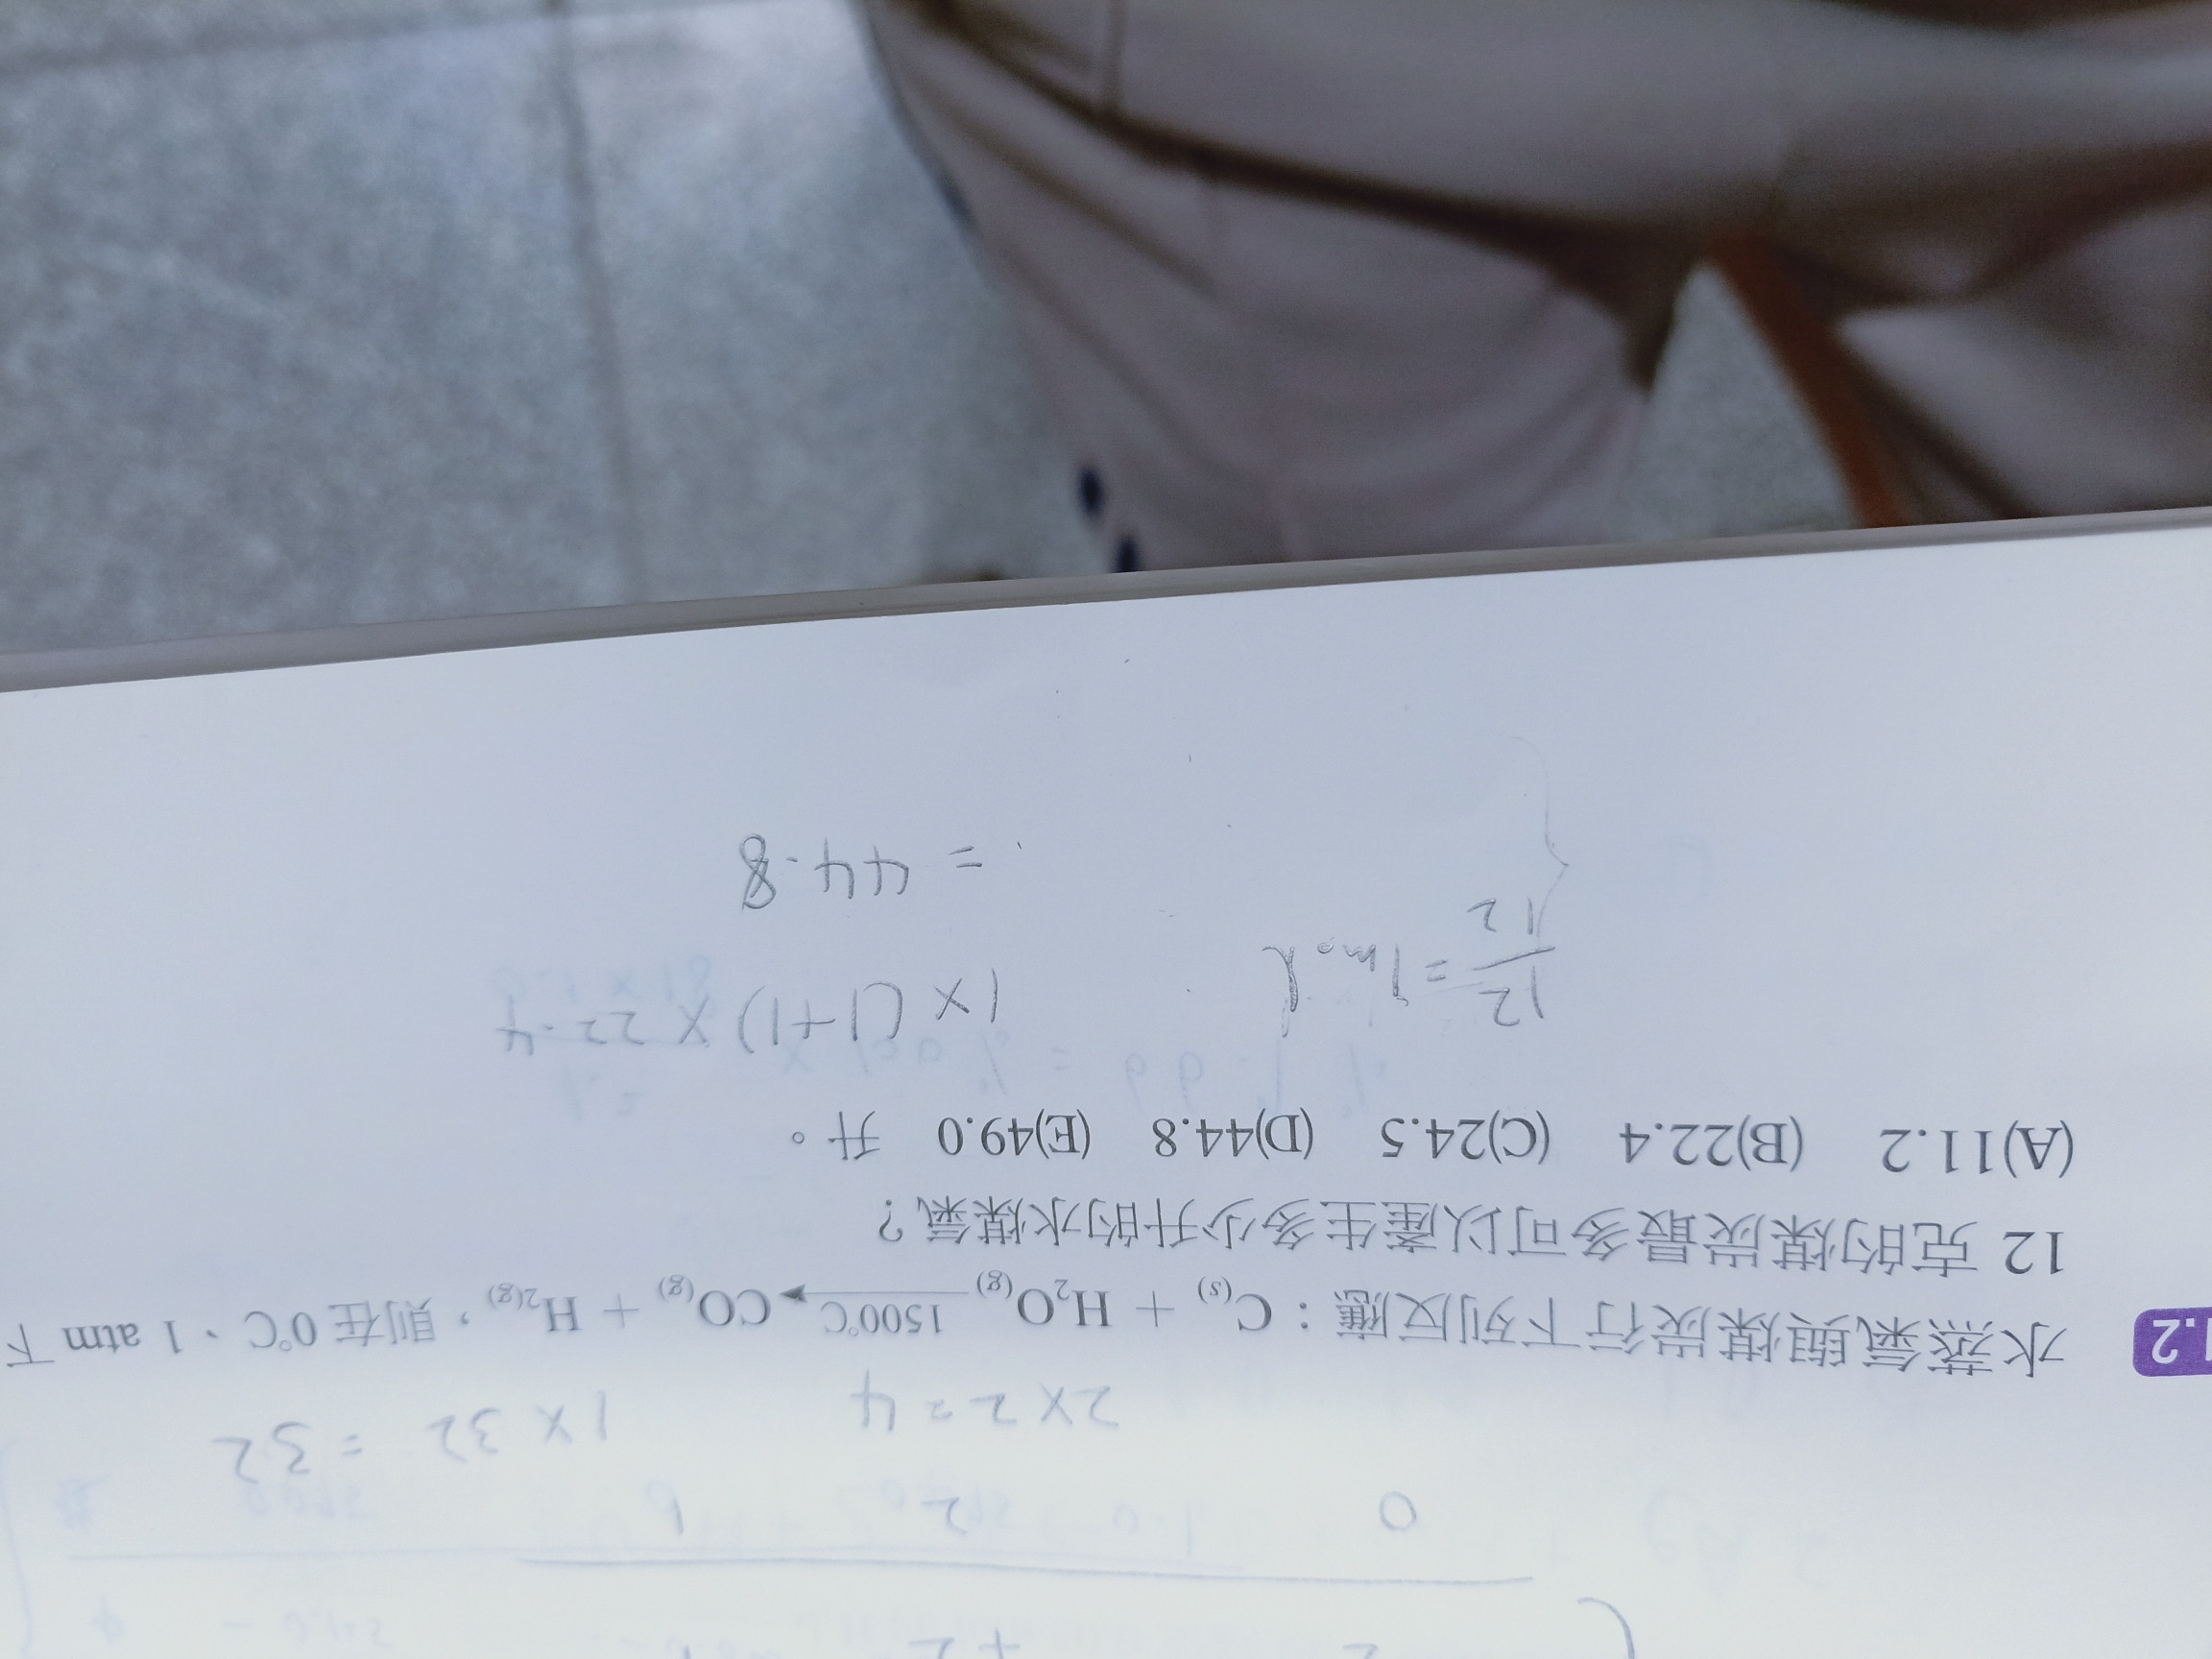 2 +2
0 2
2×2=4 1×32 = 32
1.2 水蒸氣與煤炭行下列反應：C(s) + H2O(g) 1500℃→ CO(g) + H2(g)，則在 0℃、1 atm 下
12 克的煤炭最多可以產生多少升的水煤氣？
(A)11.2 (B)22.4 (C)24.5 (D)44.8 (E)49.0 升。
12/12 = 1mol 1×(1+1)×22.4
= 44.8